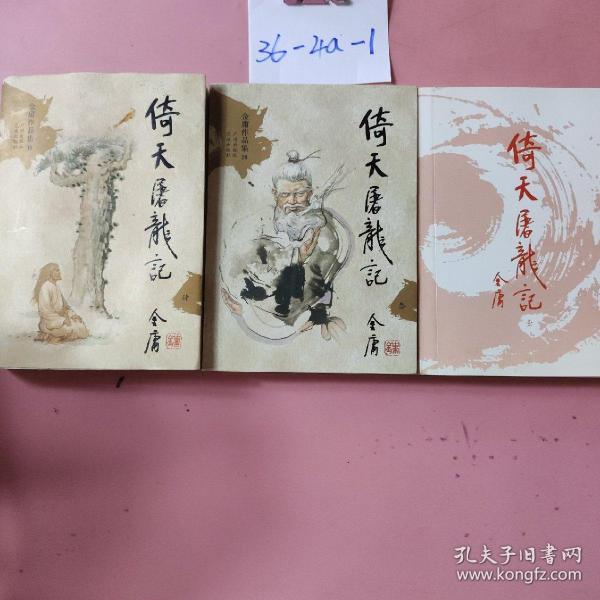 36-4a-1
金庸作品集19
倚天屠龍記
肆
金庸
金庸作品集18
倚天屠龍記
叁
金庸
倚天屠龍記
金庸
孔夫子旧书网
www.kongfz.com